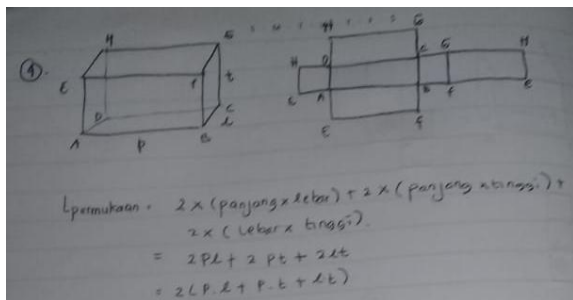 4.
H G
E F
t
D C
l
A P B
H G
H D C G H
E A B F E
E F
Lpermukaan = 2 x (panjang x lebar) + 2 x (panjang x tinggi) +
2 x (lebar x tinggi).
= 2Pl + 2 pt + 2lt
= 2(P.l + P.t + lt)